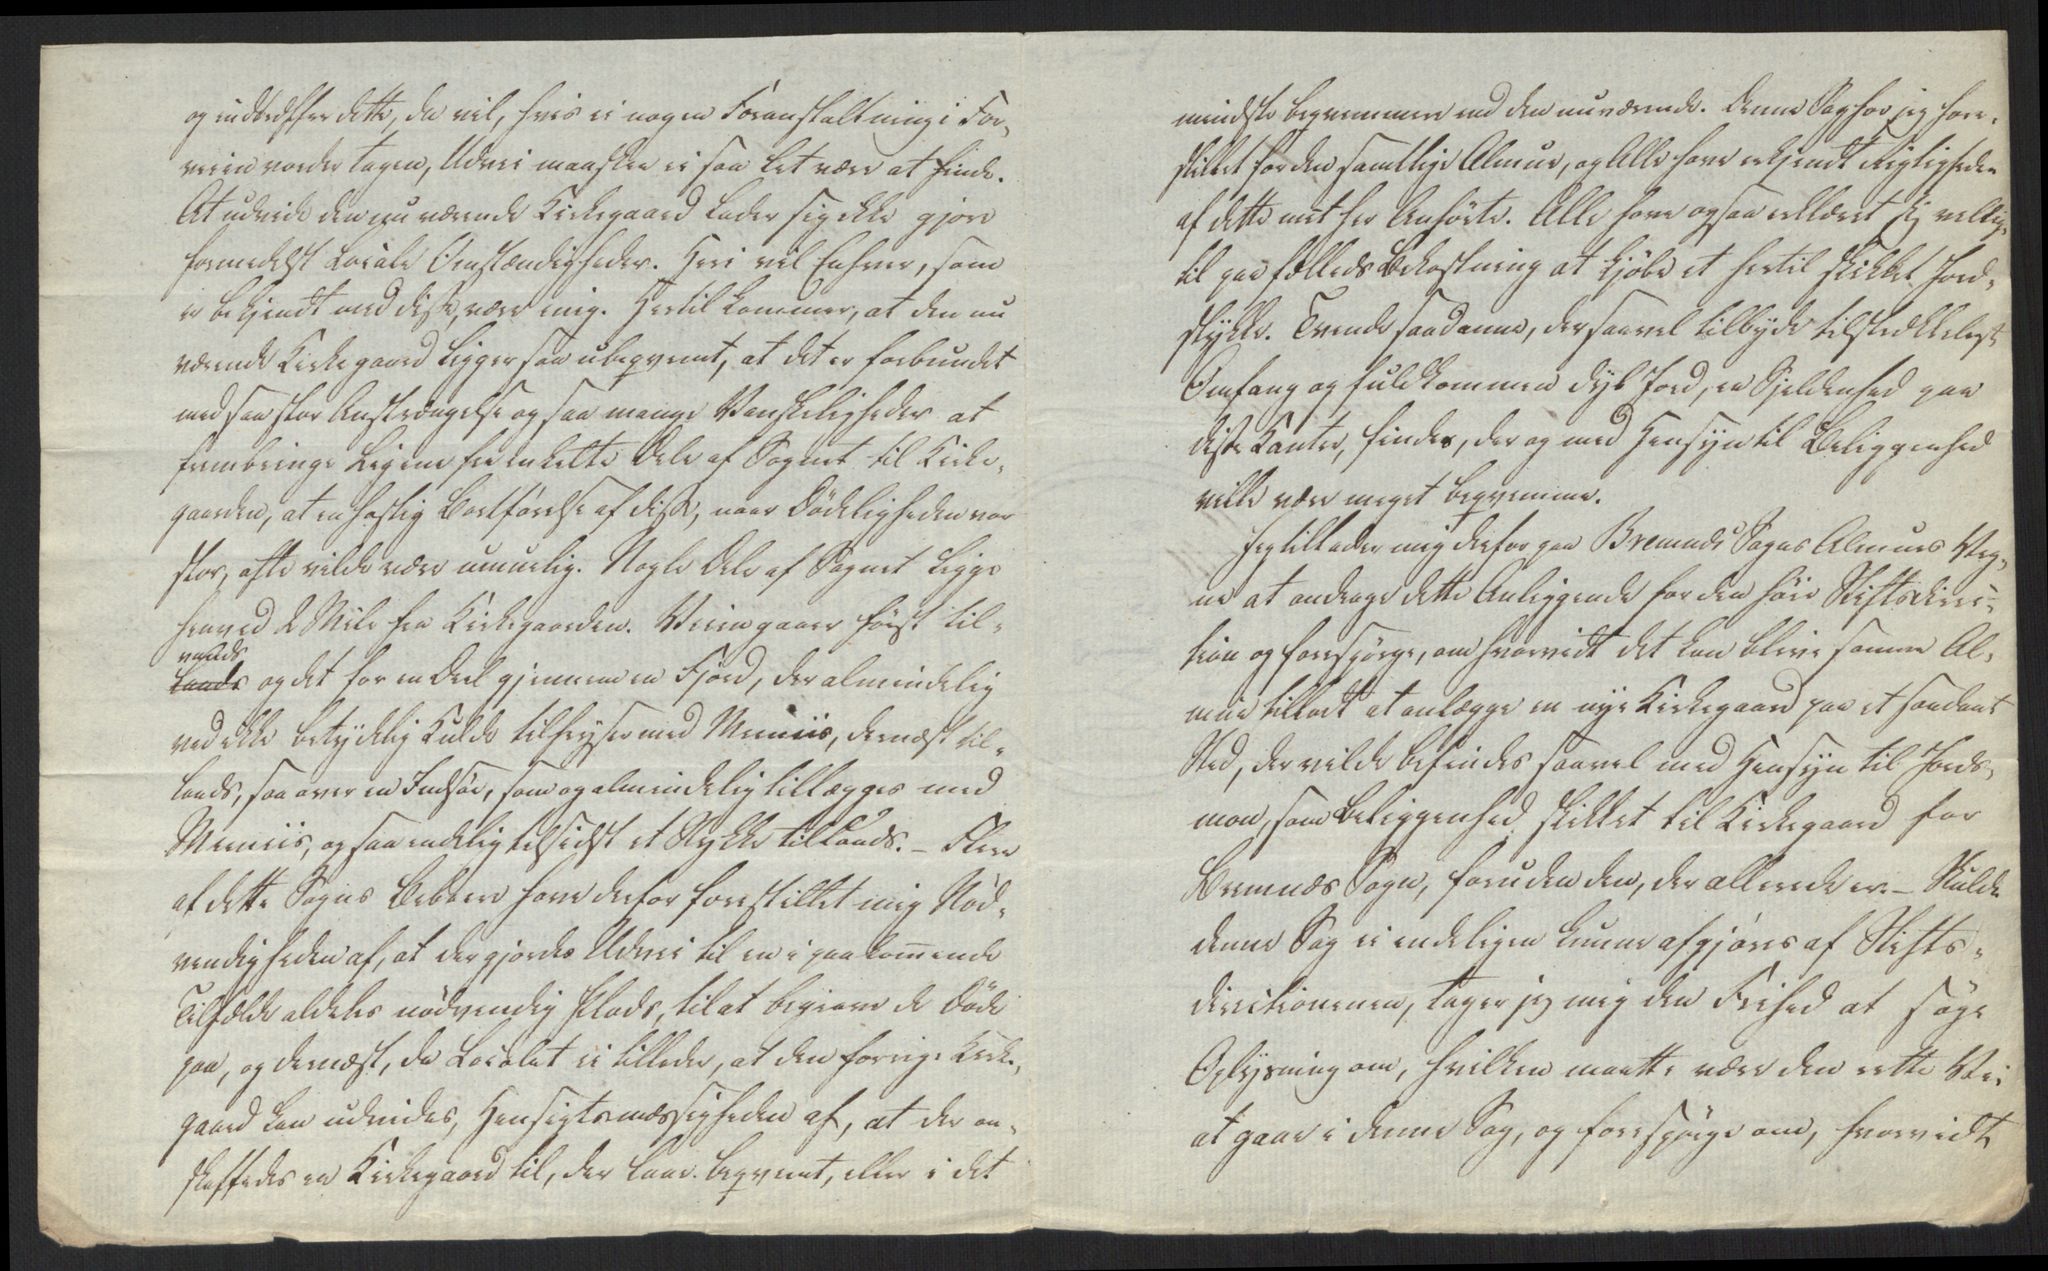 og indtræffer dette, da vil, hvis ei nogen Foranstaltning i For-
veien vorder tagen, Udvei maaskee ei saa let være at finde.
At udvide den nu værende Kirkegaard lader sig ikke gjøre
formedelst Locale Omstændigheder. Heri vil Enhver, som
er bekjendt med disse, være enig. Hertil kommer, at den nu
værende Kirkegaard ligger saa ubeqvemt, at det er forbundet
med saa stor Anstrængelse og saa mange Vanskeligheder at
frembringe Ligene fra enkelte Dele af Sognet til Kirke-
gaarden, at en hastig Bortførelse af disse, naar Dødeligheden var
stor, ofte vilde være umuelig. Nogle Dele af Sognet ligge
henved 2 Mile fra Kirkegaarden. Veien gaaer først til-
vands
lands og det for en Deel gjennem en Fjord, der almindelig
ved ikke betydelig Kulde tilfryser med Meniis, dernæst til-
lands, saa over en Indsøe, som og almindelig tillægges med
Meniis, og saa endelig tilsidst et Stykke tillands. – Flere
af dette Sogns Beboere have derfor forestillet mig Nød-
vendigheden af, at der gjordes Udvei til en i paakommende
Tilfælde aldeles nødvendig Plads, til at begrave de Døde
paa, og dernæst, da Localet ei tillader, at den forrige Kirke-
gaard kan udvides, Hensigtsmæssigheden af, at der an-
skaffedes en Kirkegaard til, der laae beqvemt, eller i det
mindste beqvemmere end den nuværende. Denne Sag har jeg fore-
stillet for den samtlige Almue, og Alle have erkjendt Rigtigheden
af dette met her Anførte. Alle have ogsaa erklæret sig villig
til paa fælleds Bekostning at kjøbe et hertil skikket Jord-
stykke. Tvende saadanne, der saavel tilbyde tilstrækkeligt
Omfang og fuldkommen dyb Jord, en Sjeldenhed paa
disse Kanter, findes, der og med Hensyn til Beliggenhed
ville være meget beqvemme.
Jeg tillader mig derfor paa Bremnæs Sogns Almues Veg-
ne at andrage dette Anliggende for den høie Stiftsdirec-
tion og forespørge, om hvorvidt det kan blive samme Al-
mue tilladt at anlægge en nye Kirkegaard paa et saadant
Sted, der vilde befindes saavel med Hensyn til Jords-
mon, som Beliggenhed skikket til Kirkegaard for
Bremnæs Sogn, foruden den, der allerede er. – Skulde
denne Sag ei endeligen kunne afgjøres af Stifts-
directionenen, tager jeg mig den Frihed at søge
Oplysning om, hvilken maatte være den rette Vei
at gaae i denne Sag, og forespørge om, hvorvidt